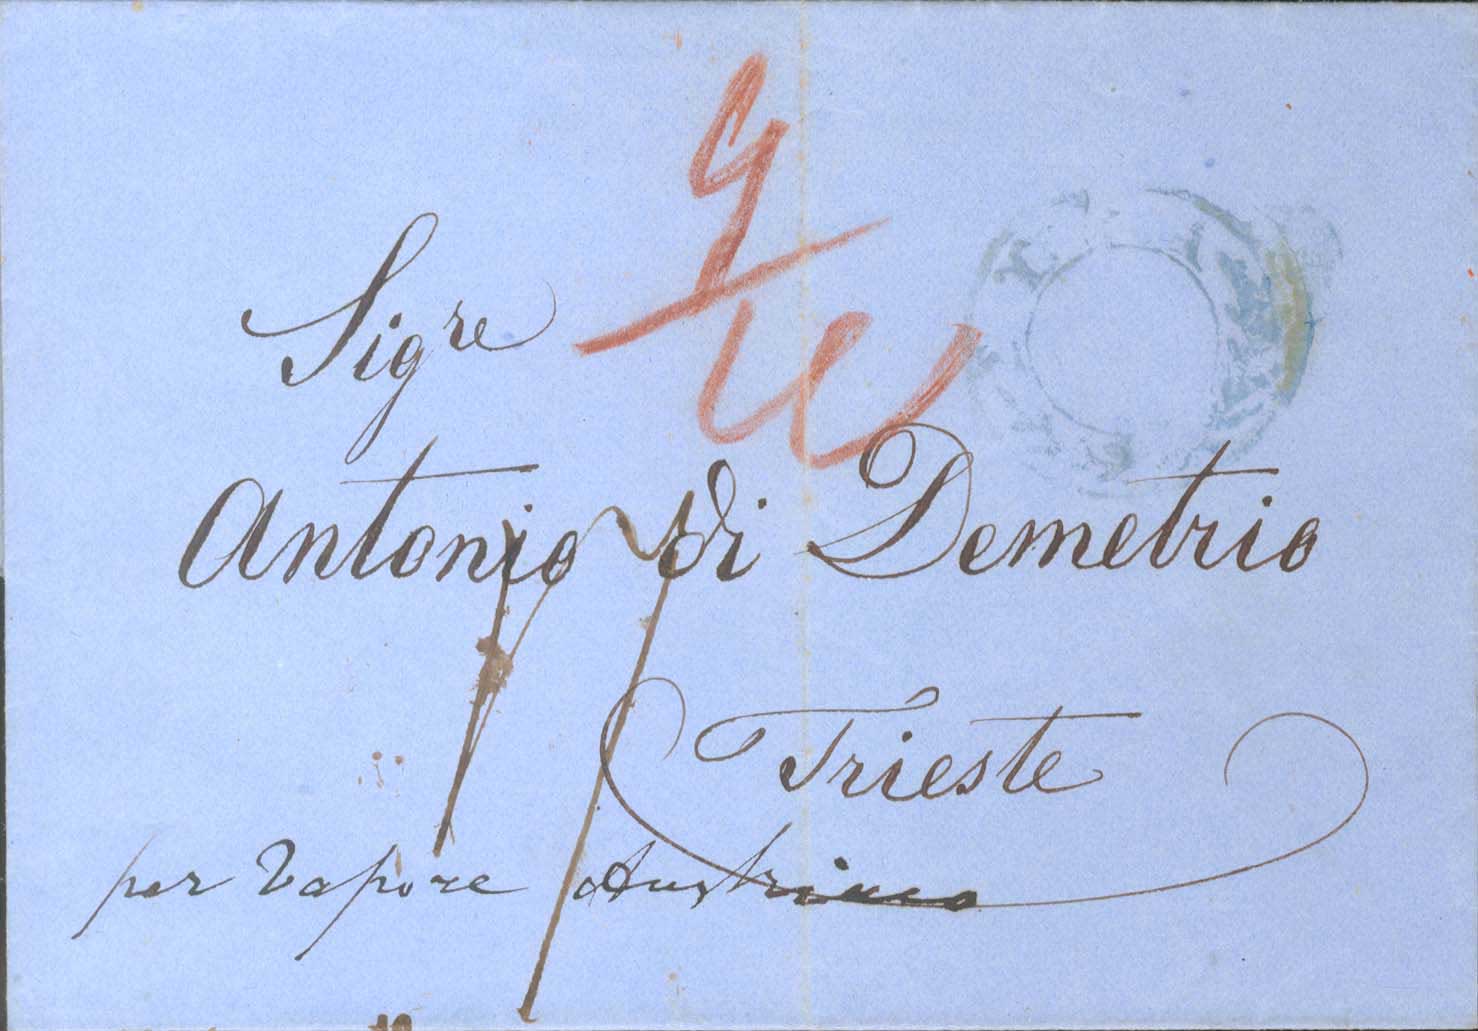 Sigre
Antonio di Demetrio
Trieste
per Vapore Austriaco